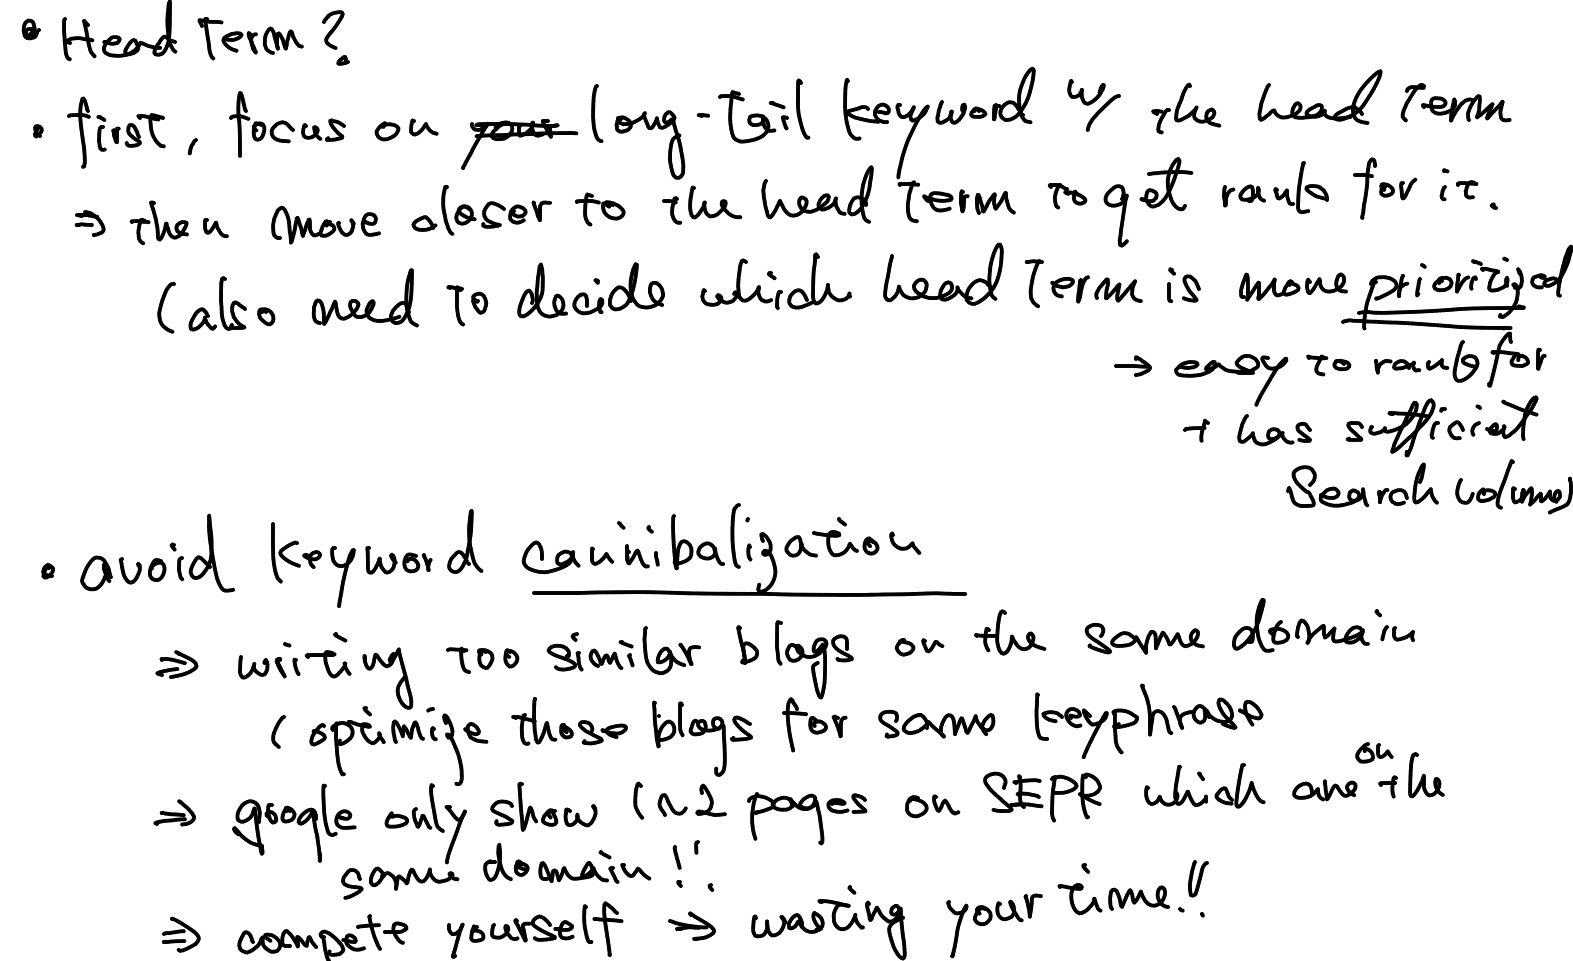 • Head Term?
• first, focus on your long-tail keyword w/ the head term
⇒ then move closer to the head term to get rank for it.
(also need to decide which head term is more prioritized
→ easy to rank for
+ has sufficient
Search volume)
• avoid keyword cannibalization
⇒ writing too similar blogs on the same domain
(optimize those blogs for same keyphrase
⇒ google only show 1~2 pages on SEPR which are on the
same domain!!
⇒ compete yourself ⇒ wasting your time!!